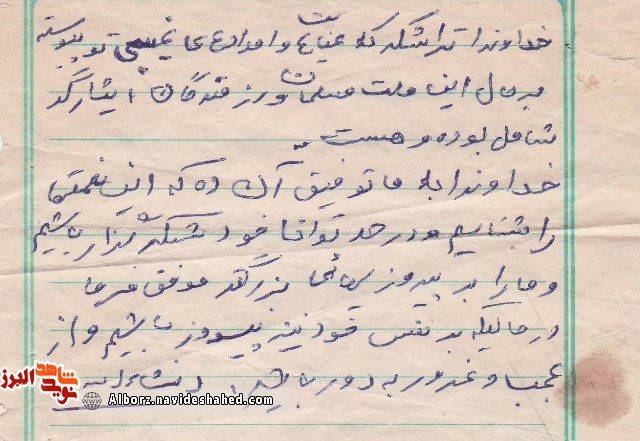 خداوندا ترا شکر که عنایات و امدادهای غیبی تو پیوسته
بر حال این ملت مسلمان و رزمندگان ایثارگر
شامل بوده و هست
خداوندا به ما توفیق آن ده که این نعمتها
را بشناسیم و در حد توان خود شکرگزار باشیم
و ما را بر پیروزیهای بزرگتر موفق فرما
در حالیکه بر نفس خود نیز پیروز باشیم و از
عجب و غرور به دور باشیم. انشاءالله
شاهد
نوید
البرز
Alborz.navideshahed.com